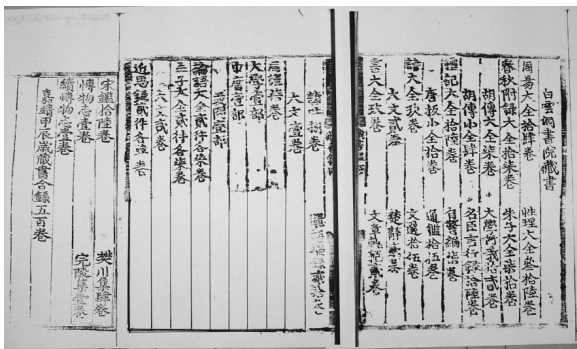 白雲洞書院藏書
周易大全拾肆卷 性理大全叄拾陸卷
春秋附錄大全拾柒卷 朱子大全柒拾卷
胡傳大全柒卷 大學衍義拾貳卷
胡傳小全肆卷 名臣言行錄拾陸卷
禮記大全拾陸卷 自警編 卷
唐板小全拾卷 通鑑拾伍卷
詩大全玖卷 文選拾伍卷
大文貳卷 楚辭 卷
書大全玖卷 文章 貳卷
諺吐 捌卷
大文壹卷
卷
大學壹部
中庸壹部
或問壹部
論語大全貳件各柒卷
孟子大全貳件各柒卷
大文貳卷
近思錄貳件各 卷
宋鑑拾陸卷 樊川集肆卷
博物志壹卷 宛陵集壹卷
續博物志壹卷
嘉靖甲辰歲藏書合錄五百卷